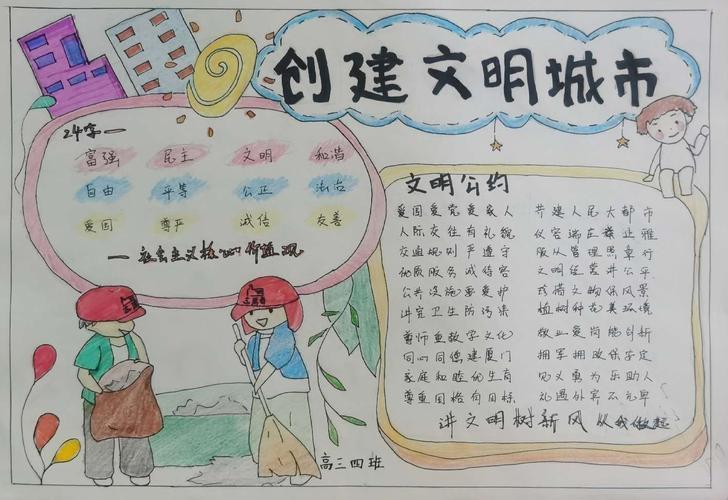 创建文明城市
24字一
富强 民主 文明 和谐
自由 平等 公正 法治
爱国 尊严 诚信 友善
一社会主义核心价值观
文明公约
爱国爱党爱家人 共建人民大都市
人际交往有礼貌 仪容端庄
交通规则严遵守 服从管理照章行
优质服务诚待客 文明经营讲公平
公共设施要爱护 珍惜文物保风景
讲究卫生防污染 植树种花美环境
尊师重教学文化 敬业爱岗能创新
同心同德建厦门 拥军拥政保安定
家庭和睦优生育 见义勇为乐助人
尊重国格有目标 礼遇外宾不
讲文明树新风 从我做起
高三四班